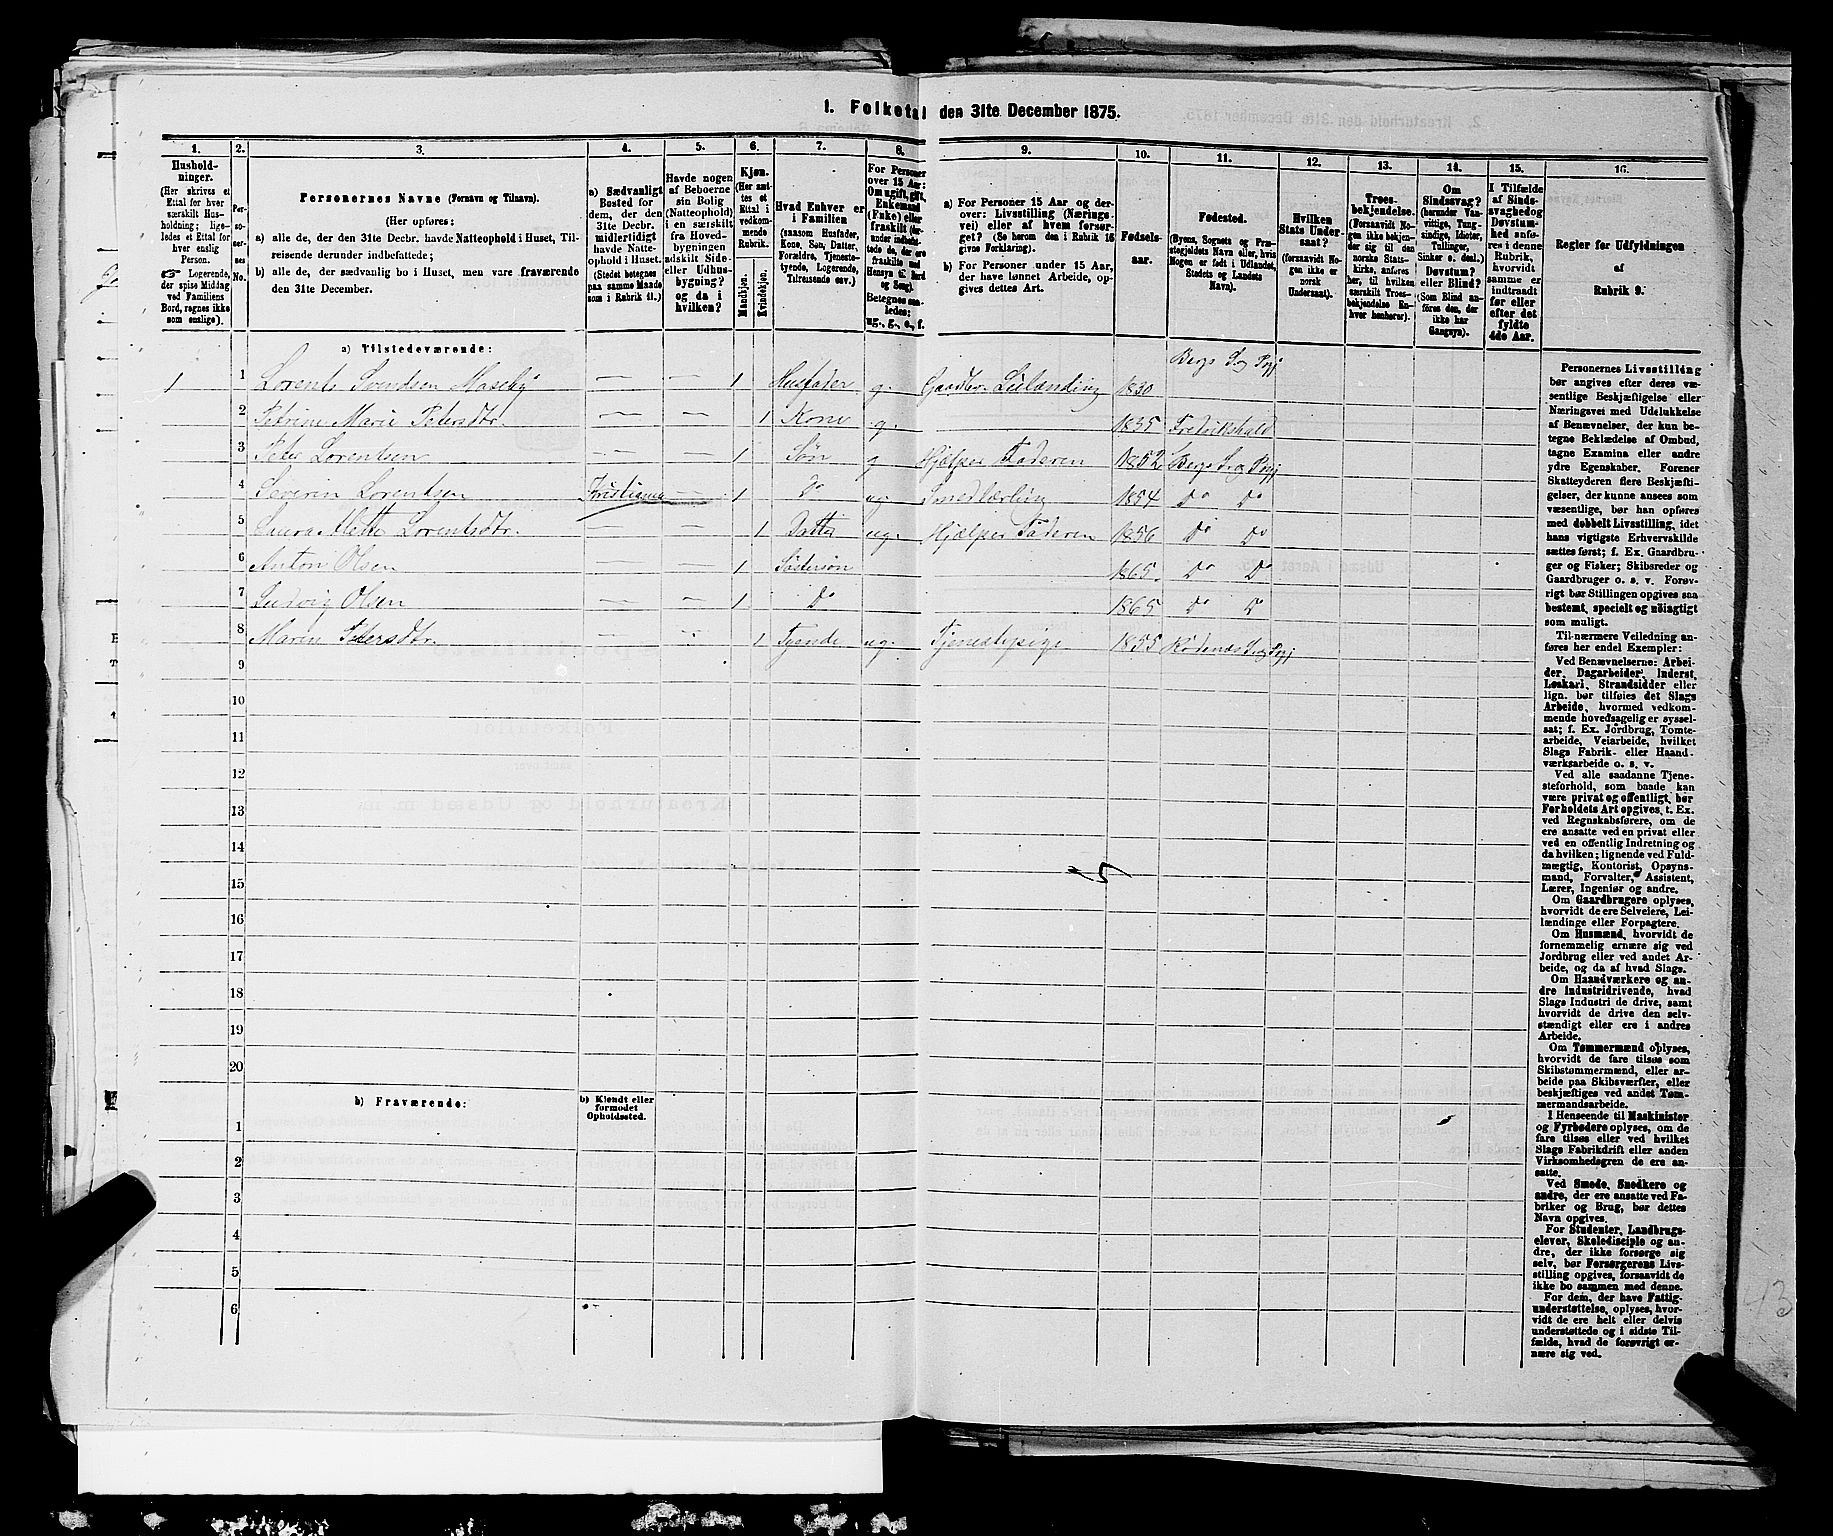 1. Folketal den 31te December 1875.
1. 2. 3. 4. 5. 6. 7. 8. 9. 10. 11. 12. 13. 14. 15. 16.
Hushold-
ninger.
(Her skrives et
Ettal for hver
særskilt Hus-
holdning; lige-
ledes et Ettal for
hver enslig
Person.
☞ Logerende,
der spise Middag
ved Familiens
Bord, regnes ikke
som enslige).
Per-
soner-
nes
No.
Personernes Navne (Fornavn og Tilnavn).
(Her opføres:
a) alle de, der den 31te Decbr. havde Natteophold i Huset, Til-
reisende derunder indbefattede;
b) alle de, der sædvanlig bo i Huset, men vare fraværende
den 31te December.
a) Sædvanligt
Bosted for
dem, der den
31te Decbr.
midlertidigt
havde Natte-
ophold i Huset.
(Stedet betegnes
paa samme Maade
som i Rubrik 11.)
Havde nogen
af Beboerne
sin Bolig
(Natteophold)
i en særskilt
fra Hoved-
bygningen
adskilt Side-
eller Udhus-
bygning?
og da i
hvilken?
Kjøn.
(Her sæt-
tes et
Ettal i
vedkom-
mende
Rubrik.
Mandkjøn.
Kvindekjøn.
Hvad Enhver er
i Familien
(saasom Husfader,
Kone, Søn, Datter,
Forældre, Tjeneste-
tyende, Logerende,
Tilreisende osv.)
For Personer
over 15 Aar:
Om ugift, gift,
Enkemand
(Enke) eller
fraskilt
Betegnes saa-
ledes:
ug., g., e., f.
a) For Personer 15 Aar og der-
over: Livsstilling (Nærings-
vei) eller af hvem forsør-
get? (Se herom den i Rubrik 16
givne Forklaring).
b) For Personer under 15 Aar,
der have lønnet Arbeide, op-
gives dettes Art.
Fødsels-
aar.
Fødested.
(Byens, Sognets og Præ-
stegjeldets Navn eller, hvis
Nogen er født i Udlandet,
Stedets og Landets
Navn).
Hvilken
Stats Under-
saat?
(forsaavidt No-
gen ikke er
norsk
Undersaat).
Troes-
bekjendelse.
(Forsaavidt No-
gen ikke bekjen-
der sig til den
norske Stats-
kirke, anføres
her, til hvilken
særskilt Troes-
bekjendelse En-
hver henhører).
Om
Sindssvag?
(herunder Van-
vittige, Tung-
sindige, Idioter,
Tullinger,
Sinker o. desl.)
Døvstum?
eller Blind?
(Som Blind an-
føres den, der
ikke har
Gangsyn).
I Tilfælde
af Sinds-
svaghed og
Døvstum-
hed anfø-
res i denne
Rubrik,
hvorvidt
samme er
indtraadt
før eller
efter det
fyldte
4de Aar.
Regler for Udfyldningen
af
Rubrik 9.
a) Tilstedeværende:
1 1 Lorents Svendsen Maseby — — 1 Husfader g. Gaardbr. Leilænding 1830 Bergs S og Pgj
2 Petrine Marie Petersdtr. — — 1 Kone g. 1835 Fredrikshald
3 Peter Lorentsen — — 1 Søn g Hjælper Faderen 1852 Bergs S og Pgj
4 Severin Lorentsen Kristiania — 1 Do ug Smedlærling 1854 Do Do
5 Laura Mette Lorentsdtr. — — 1 Datter ug. Hjælper Faderen 1856 Do Do
6 Anton Olsen — — 1 Søstersøn 1865. Do Do
7 Ludvig Olsen — — 1 Do 1865 Do Do
8 Maren Petersdtr. — 1 Tyende ug. Tjenestepige 1855 Rødenæs S og Pgj
9
10
11
12
13
14
15
16
17
18
19
20
b) Fraværende: b) Kjendt eller
formodet
Opholdssted.
1
2
3
4
5
6
Personernes Livsstilling
bør angives efter deres væ-
sentlige Beskjæftigelse eller
Næringsvei med Udelukkelse
af Benævnelser, der kun be-
tegne Beklædelse af Ombud,
tagne Examina eller andre
ydre Egenskaber. Forener
Skatteyderen flere Beskjæfti-
gelser, der kunne ansees som
væsentlige, bør han opføres
med dobbelt Livsstilling, idet
hans vigtigste Erhvervskilde
sættes først; f. Ex. Gaardbru-
ger og Fisker; Skibsreder og
Gaardbruger o. s. v. Forøv-
rigt bør Stillingen opgives saa
bestemt, specielt og nöiagtigt
som muligt.
Til nærmere Veiledning an-
føres her endel Exempler:
Ved Benævnelserne: Arbei-
der, Dagarbeider, Inderst,
Løskarl, Strandsidder eller
lign. bør tilføies det Slags
Arbeide, hvormed vedkom-
mende hovedsagelig er syssel-
sat; f. Ex. Jordbrug, Tomte-
arbeide, Veiarbeide, hvilket
Slags Fabrik- eller Haand-
værksarbeide o. s. v.
Ved alle saadanne Tjene-
steforhold, som baade kan
være privat og offentligt, bør
Forholdets Art opgives, t. Ex.
ved Regnskabsførere, om de
ere ansatte ved en privat eller
ved en offentlig Indretning og
da hvilken; lignende ved Fuld-
mægtig, Kontorist, Opsyns-
mand, Forvalter, Assistent,
Lærer, Ingeniør og andre.
Om Gaardbrugere oplyses,
hvorvidt de ere Selveiere, Lei-
lændinge eller Forpagtere.
Om Husmænd, hvorvidt de
fornemmelig ernære sig ved
Jordbrug eller ved andet Ar-
beide, og da af hvad Slags.
Om Haandværkere og an-
dre industridrivende, hvad
Slags Industri de drive, samt
hvorvidt de drive den selv-
stændigt eller ere i andres
Arbeide.
Om Tømmermænd oplyses,
hvorvidt de fare tilsøs som
Skibstømmermænd, eller ar-
beide paa Skibsværfter, eller
beskjæftiges ved andet Tøm-
mermandsarbeide.
I Henseende til Maskinister
og Fyrbødere oplyses, om de
fare tilsøs eller ved hvilket
Slags Fabrikdrift eller anden
Virksomhedsgren de ere an-
satte.
Ved Smede, Snedkere og
andre, der ere ansatte ved Fa-
briker og Brug, bør dettes
Navn opgives.
For Studenter, Landbrugs-
elever, Skoledisciple og an-
dre, der ikke forsørge sig
selv, bør Forsørgerens Livs-
stilling opgives, forsaavidt de
ikke bo sammen med denne.
For dem, der have Fattig-
understøttelse, oplyses, hvor-
vidt de ere helt eller delvis
understøttede og i sidste Til-
fælde, hvad de forøvrigt er-
nære sig ved.